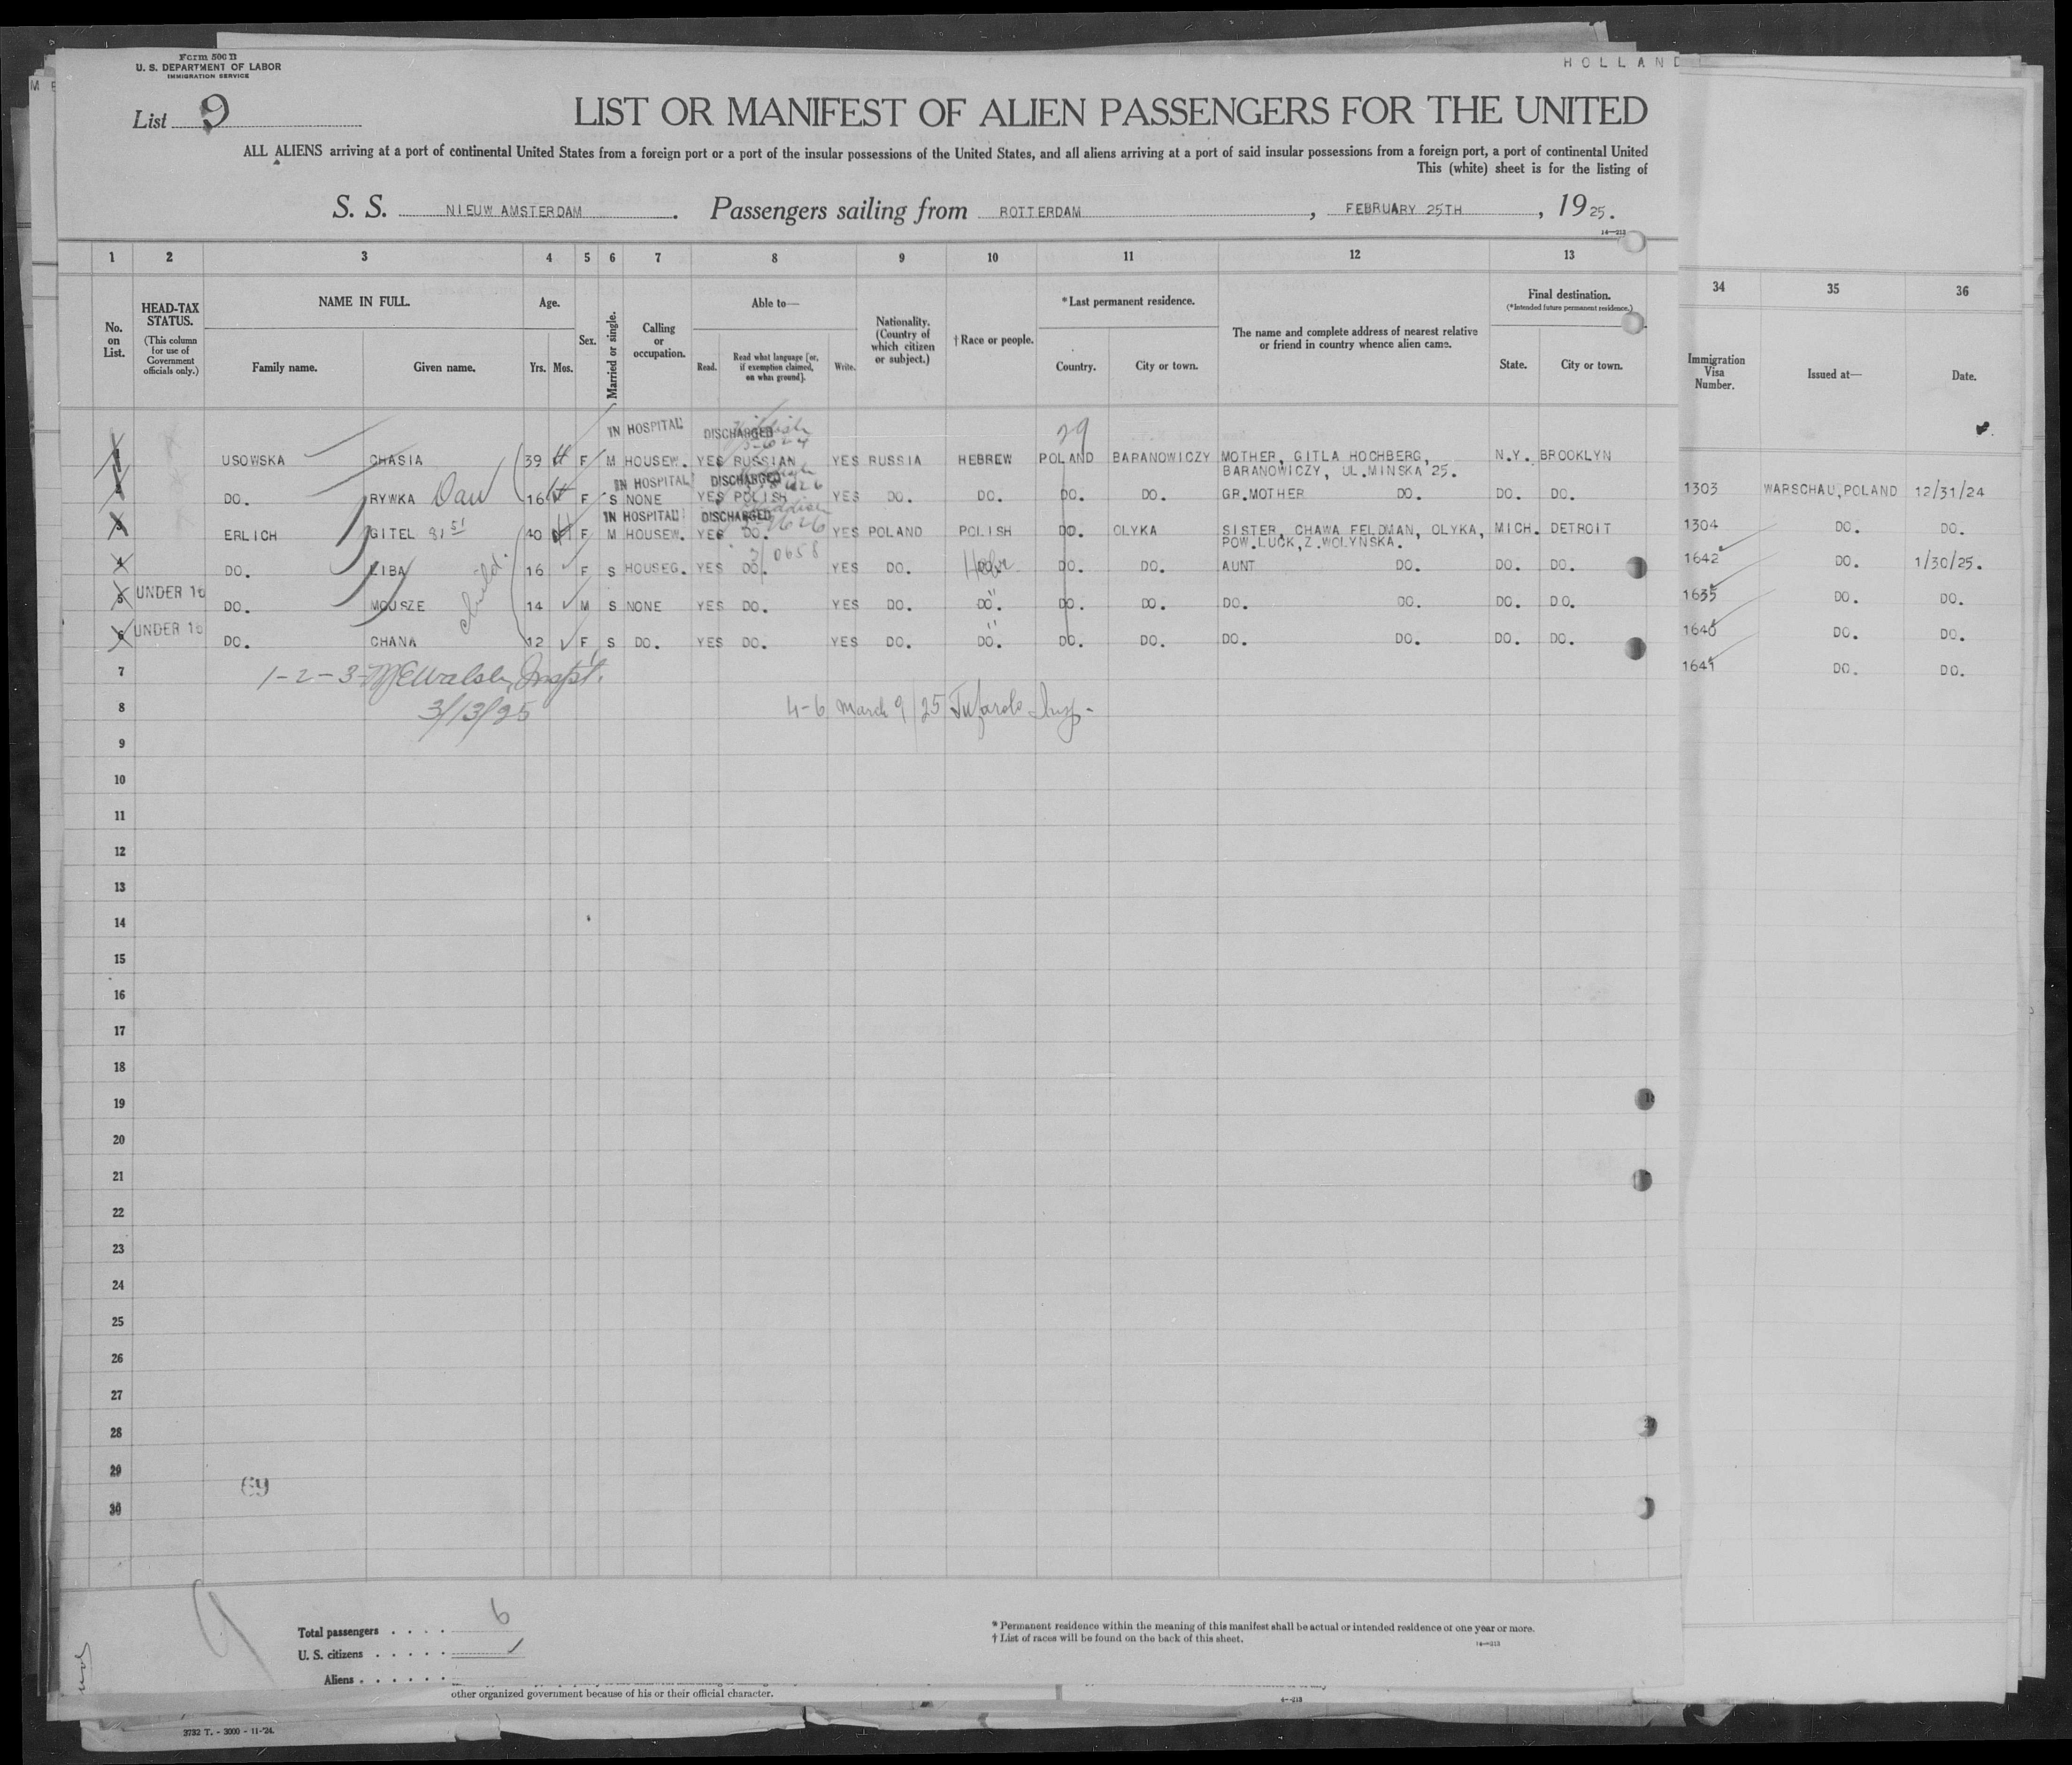 Form 500 B
U. S. DEPARTMENT OF LABOR
IMMIGRATION SERVICE
HOLLAND
List 9
LIST OR MANIFEST OF ALIEN PASSENGERS FOR THE UNITED
ALL ALIENS arriving at a port of continental United States from a foreign port or a port of the insular possessions of the United States, and all aliens arriving at a port of said insular possessions from a foreign port, a port of continental United
This (white) sheet is for the listing of
S. S. NIEUW AMSTERDAM . Passengers sailing from ROTTERDAM , FEBRUARY 25TH , 19 25.
14—213
1 2 3 4 5 6 7 8 9 10 11 12 13 34 35 36
No. on List.
HEAD-TAX STATUS.
(This column for use of Government officials only.)
NAME IN FULL.
Family name. Given name.
Age.
Yrs. Mos.
Sex.
Married or single.
Calling or occupation.
Able to—
Read. Read what language [or, if exemption claimed, on what ground]. Write.
Nationality. (Country of which citizen or subject.)
† Race or people.
*Last permanent residence.
Country. City or town.
The name and complete address of nearest relative or friend in country whence alien came.
Final destination.
(*Intended future permanent residence.)
State. City or town.
Immigration Visa Number.
Issued at—
Date.
IN HOSPITAL DISCHARGED Yiddish 29
1 USOWSKA CHASIA 39 F M HOUSEW. YES RUSSIAN YES RUSSIA HEBREW POLAND BARANOWICZY MOTHER, GITLA HOCHBERG, N.Y. BROOKLYN
BARANOWICZY, UL.MINSKA 25.
IN HOSPITAL DISCHARGED
DO. RYWKA Dau 16 F S NONE YES POLISH YES DO. DO. DO. DO. GR.MOTHER DO. DO. DO. 1303 WARSCHAU,POLAND 12/31/24
IN HOSPITAL DISCHARGED Yiddish
3 ERLICH GITEL 40 F M HOUSEW. YES DO. YES POLAND POLISH DO. OLYKA SISTER, CHAWA FELDMAN, OLYKA, MICH. DETROIT 1304 DO. DO.
POW.LUCK,Z.WOLYNSKA.
4 DO. LIBA 16 F S HOUSEG. YES DO. YES DO. Hebr DO. DO. AUNT DO. DO. DO. 1642 DO. 1/30/25.
5 UNDER 16 DO. MOJSZE 14 M S NONE YES DO. YES DO. DO. DO. DO. DO. DO. DO. DO. 1635 DO. DO.
6 UNDER 16 DO. CHANA 12 F S DO. YES DO. YES DO. DO. DO. DO. DO. DO. DO. DO. 1640 DO. DO.
child.
7 1-2-3- Walsh, Inspt. 1641 DO. DO.
8 3/13/25 4-6 March 9/25 Insp.
9
10
11
12
13
14
15
16
17
18
19
20
21
22
23
24
25
26
27
28
29
69
30
9
Total passengers . . . . 6
U. S. citizens . . . . .
Aliens . . . . . .
* Permanent residence within the meaning of this manifest shall be actual or intended residence of one year or more.
† List of races will be found on the back of this sheet.
14—213
other organized government because of his or their official character.
3732 T. - 3000 - 11-'24.